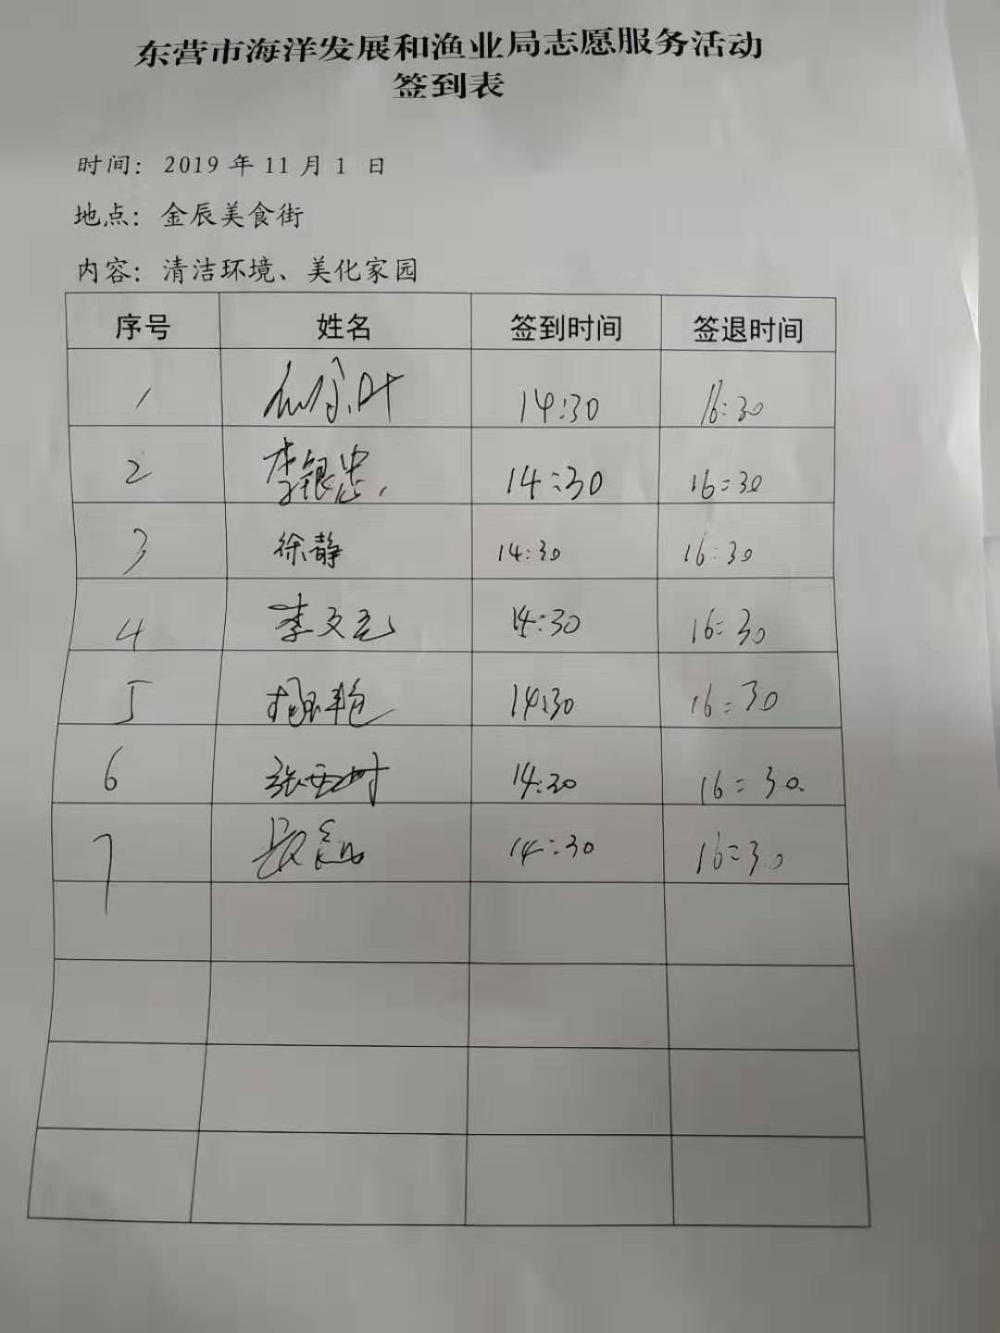 东营市海洋发展和渔业局志愿服务活动
签到表
时间：2019年11月1日
地点：金辰美食街
内容：清洁环境、美化家园
序号 姓名 签到时间 签退时间
1 14:30 16:30
2 李银忠 14:30 16:30
3 徐静 14:30 16:30
4 李文亮 14:30 16:30
5 14:30 16:30
6 14:30 16:30
7 14:30 16:30